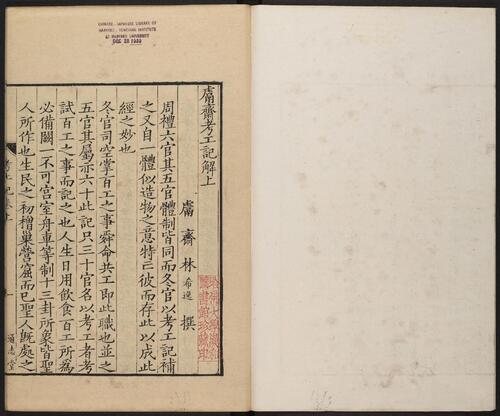 CHINESE-JAPANESE LIBRARY OF
HARVARD-YENCHING INSTITUTE
AT HARVARD UNIVERSITY
DEC 28 1935
鬳齋考工記解上
鬳齋林希逸撰
周禮六官其五官體制皆同而冬官以考工記補
之又自一體似造物之意特亡彼而存此以成此
經之妙也
冬官司空掌百工之事舜命共工即此職也並之
五官其屬亦六十此記只三十官名以考工者考
試百工之事而記之也人生日用飲食百工所為
必備闕一不可宮室舟車等制十三卦所象皆聖
人所作也生民之初橧巢營窟而已聖人既處之
考工記卷上
一
通志堂
哈佛大學漢和
圖書館珍藏印